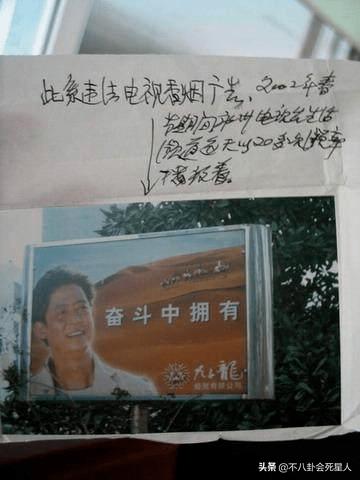 此系违法电视香烟广告、2002年春
节期间 电视台生活
频道 天以20多次频率
播放着。
奋斗中拥有
龍
经贸有限公司
头条 @不八卦会死星人